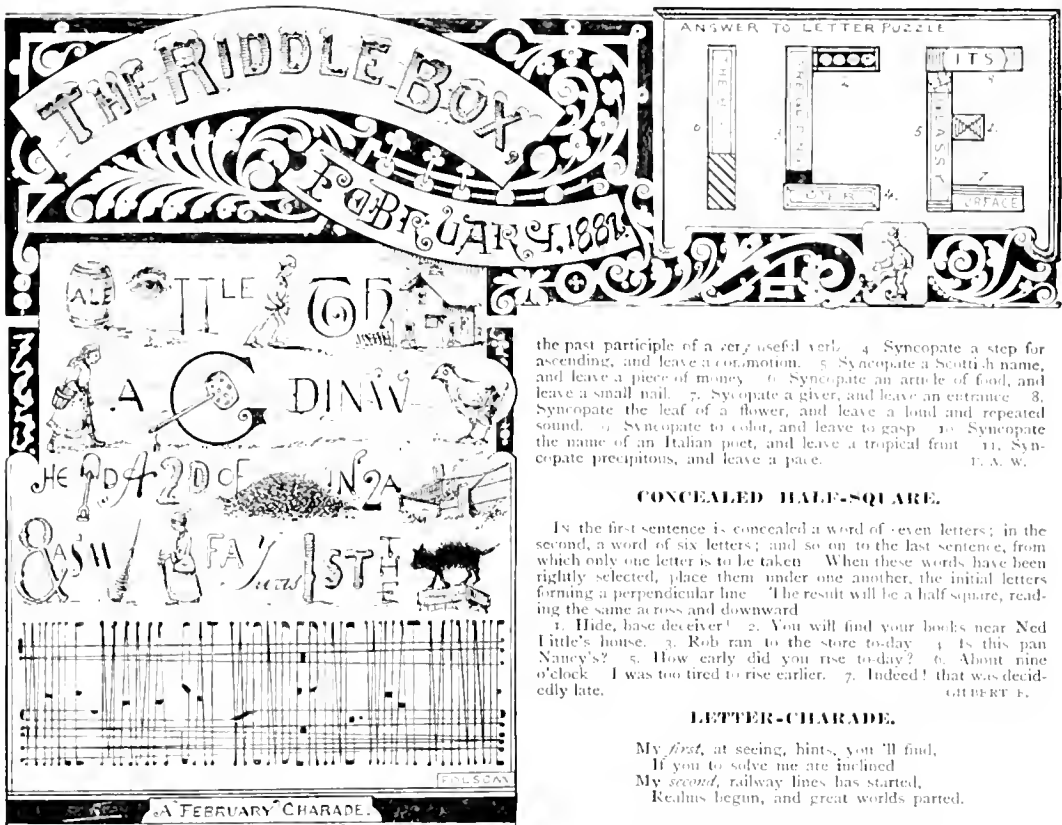 THE RIDDLE BOX,
FEBRUARY. 1881.
ANSWER TO LETTER PUZZLE
ITS
COVER
GLASSY
ALE
A
DINW
HE
IN 2 A
&
FA
1ST THE
FOLSOM
A "FEBRUARY" CHARADE.
the past participle of a very useful verb. 4. Syncopate a step for
ascending, and leave a commotion. 5. Syncopate a Scottish name,
and leave a piece of money. 6. Syncopate an article of food, and
leave a small nail. 7. Sycopate a giver, and leave an entrance. 8.
Syncopate the leaf of a flower, and leave a loud and repeated
sound. 9. Syncopate to color, and leave to gasp. 10. Syncopate
the name of an Italian poet, and leave a tropical fruit. 11. Syn-
copate precipitous, and leave a pace. F. A. W.
CONCEALED HALF-SQUARE.
IN the first sentence is concealed a word of seven letters; in the
second, a word of six letters; and so on to the last sentence, from
which only one letter is to be taken. When these words have been
rightly selected, place them under one another, the initial letters
forming a perpendicular line. The result will be a half square, read-
ing the same across and downward.
1. Hide, base deceiver! 2. You will find your books near Ned
Little's house. 3. Rob ran to the store to-day. 4. Is this pan
Nancy's? 5. How early did you rise to-day? 6. About nine
o'clock. I was too tired to rise earlier. 7. Indeed! that was decid-
edly late. GILBERT F.
LETTER-CHARADE.
My first, at seeing, hints, you 'll find,
If you to solve me are inclined
My second, railway lines has started,
Realms begun, and great worlds parted.